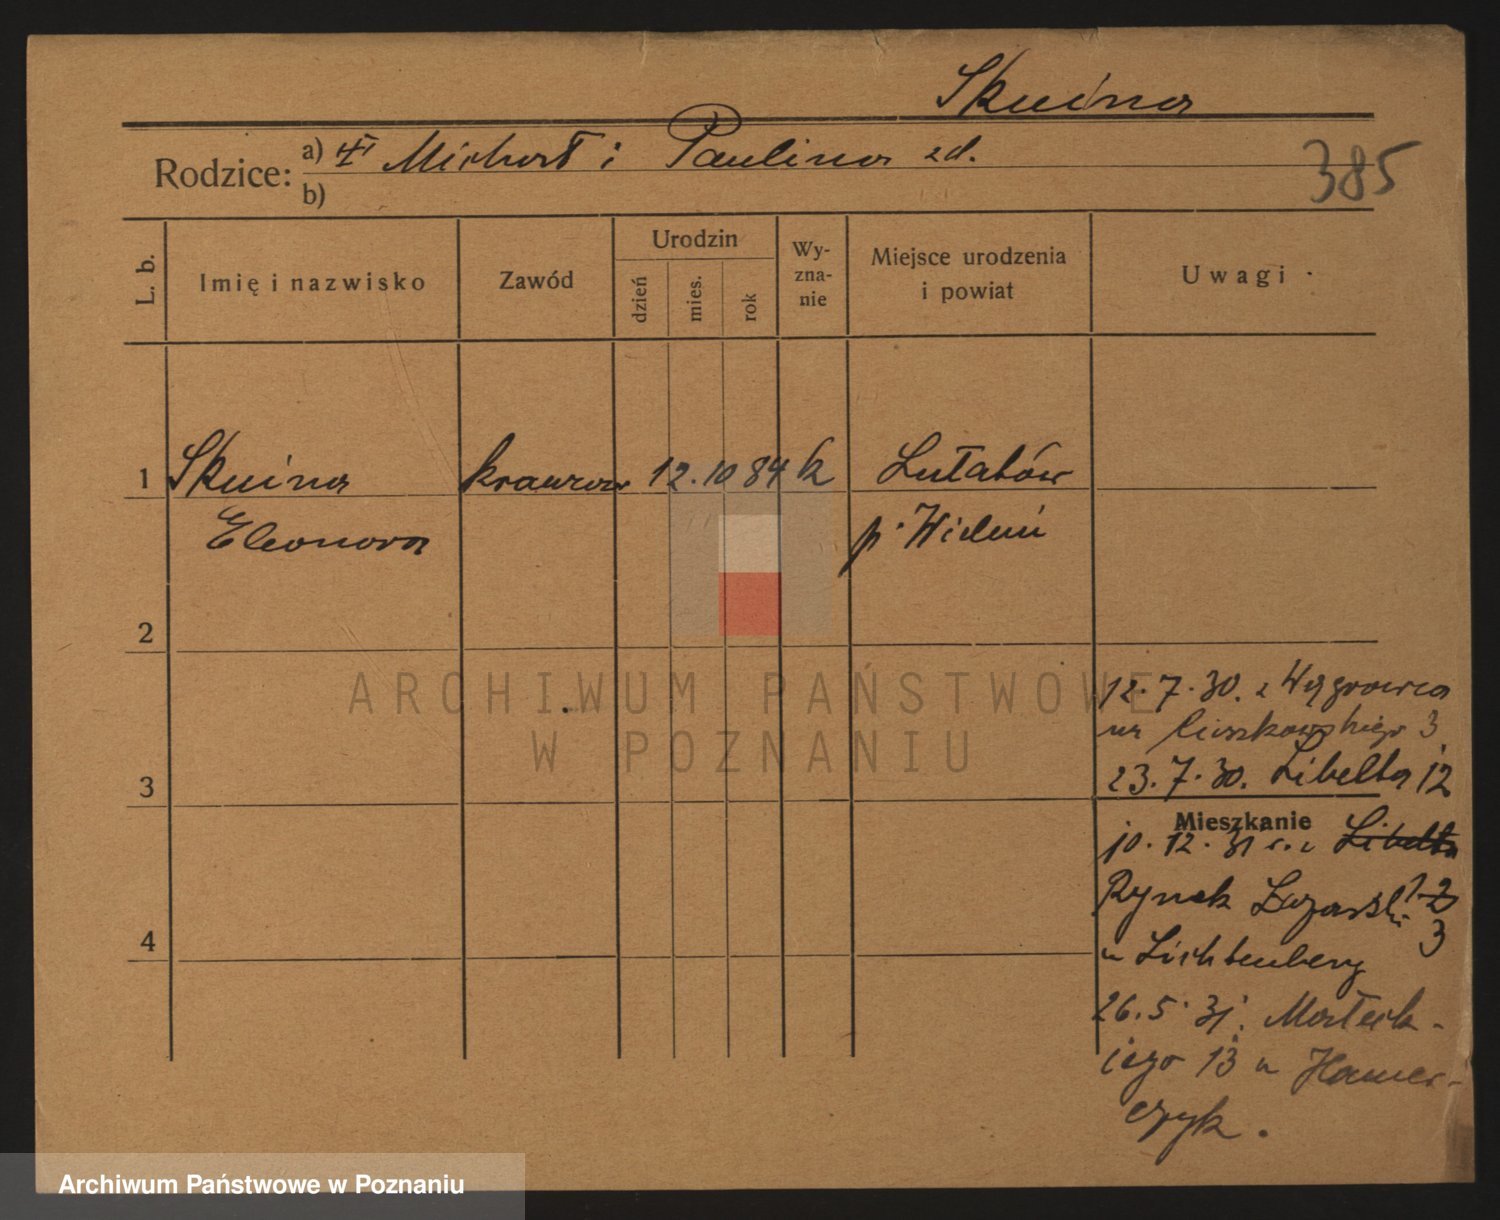 Skuina
Rodzice:
a) Michał i Paulina zd.
b)
385
L. b.
Imię i nazwisko
Zawód
Urodzin
dzień
mies.
rok
Wy-
zna-
nie
Miejsce urodzenia
i powiat
Uwagi
1 Skuina krawcowa 12. 10 84 k Lututów
Eleonora p. Wieluń
2
12. 7. 30. z Wągrowca
Cieszkowskiego 3
3
23. 7. 30. Libelta 12
Mieszkanie
10. 12. 31 Libelta
Rynek Łazarski 12
3
4
u Lichtenberg
26. 5. 31. Małeck-
iego 13 u Hamer-
czyk.
ARCHIWUM PAŃSTWOWE
W POZNANIU
Archiwum Państwowe w Poznaniu